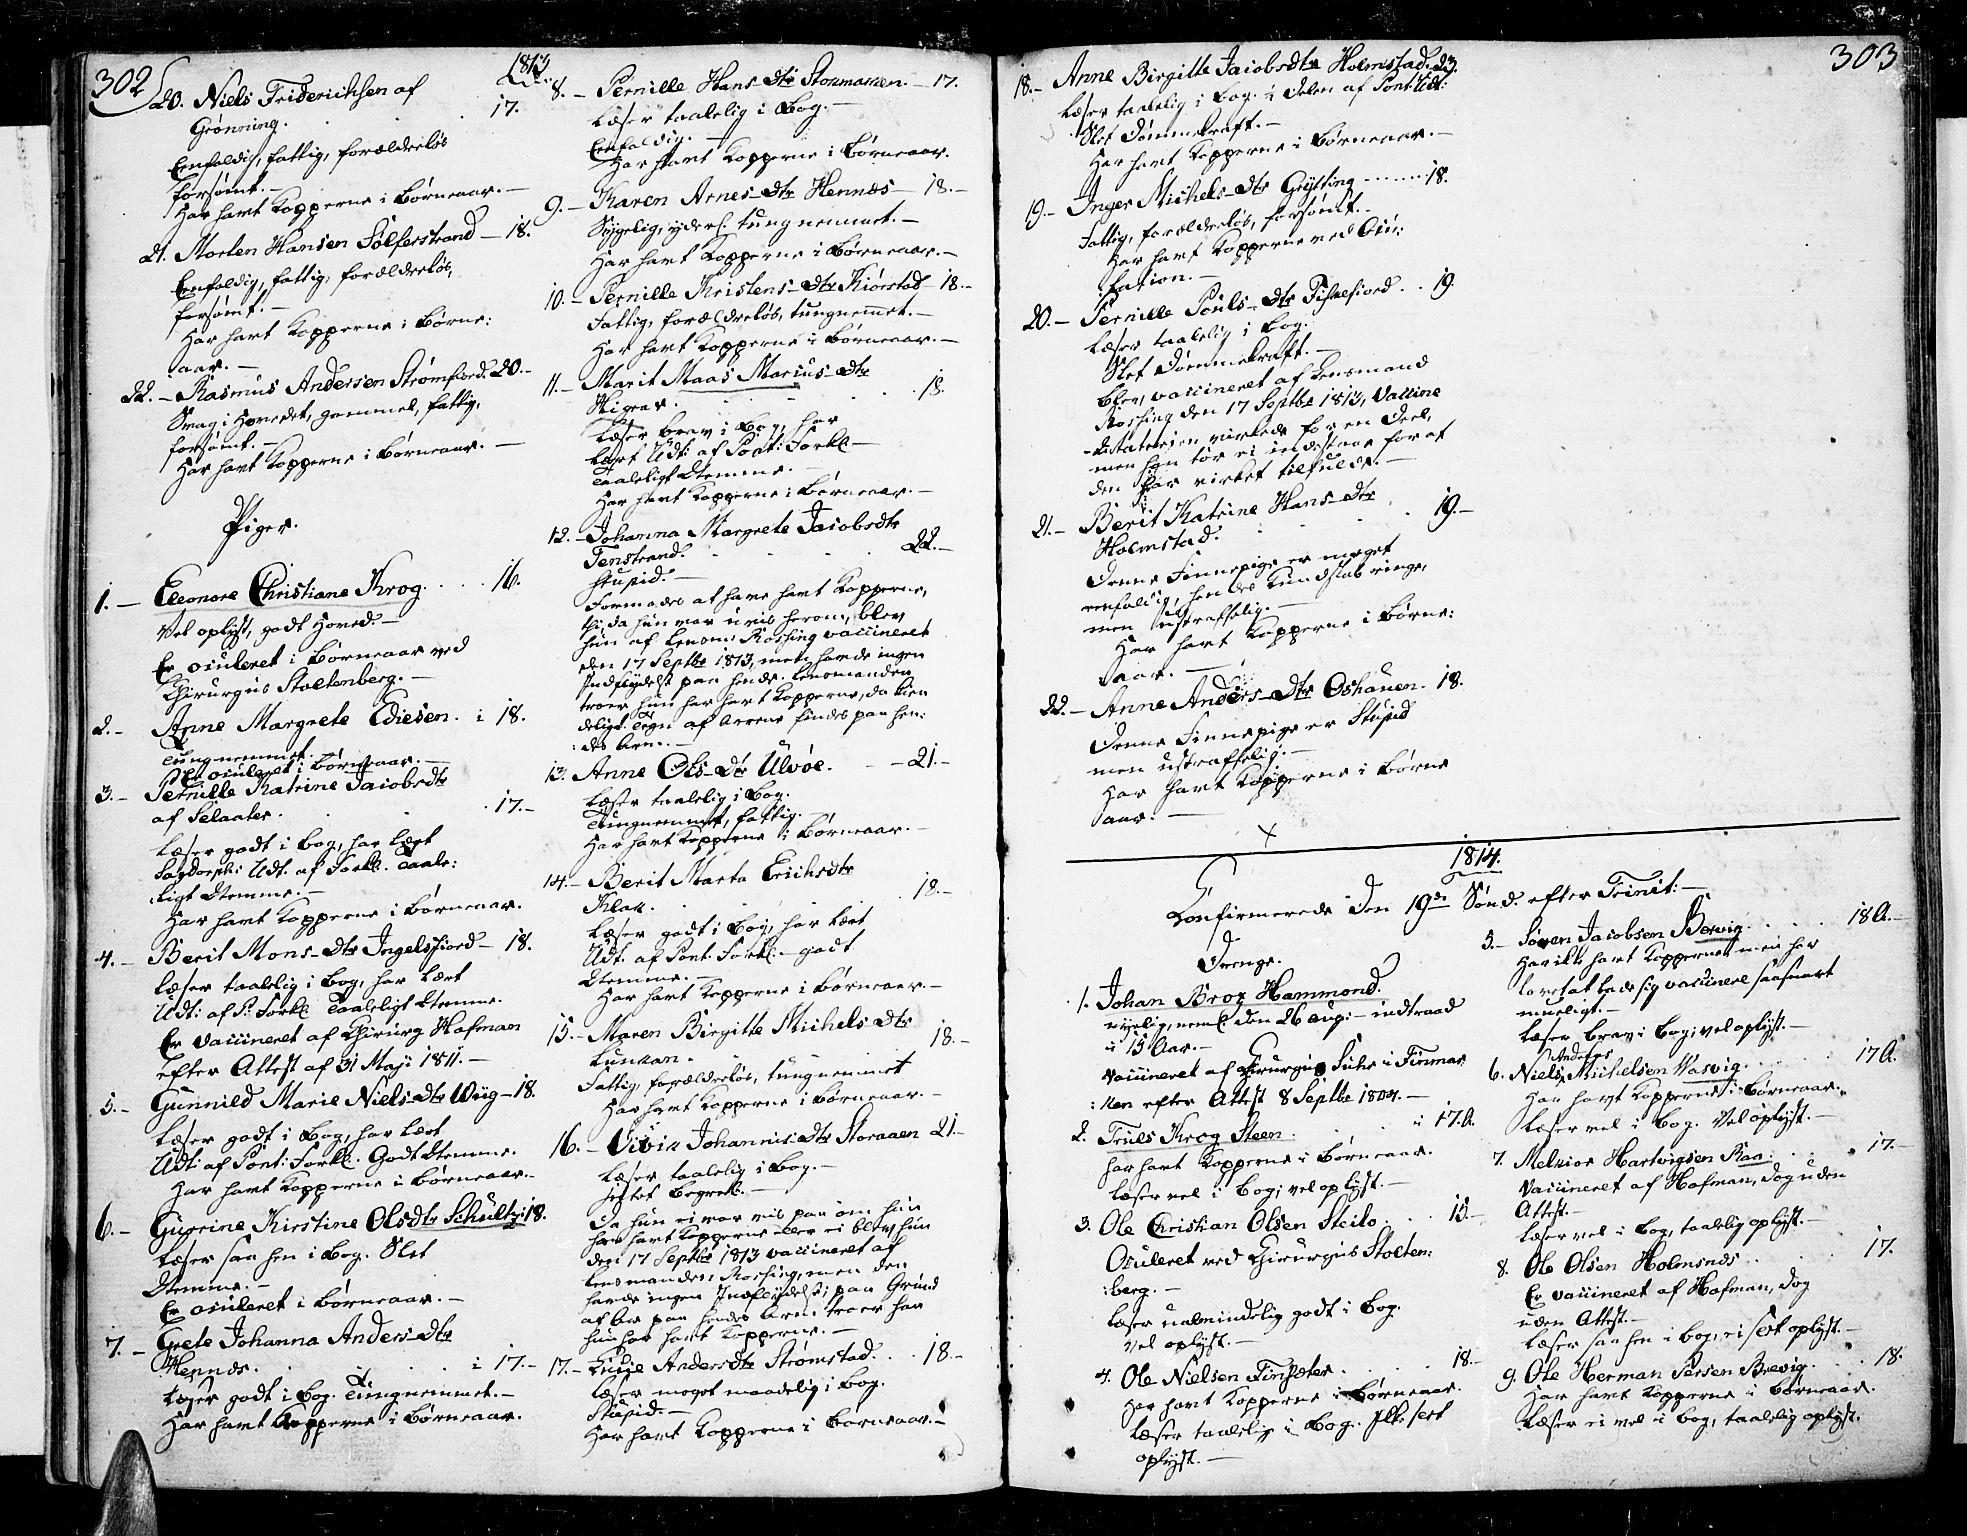 302
1813
20. Niels Friderichsen af
Grønning. 17.
Eenfoldig, fattig, forældreløs
forsømt. —
Har havt Kopperne i Børneaar. —
21. Morten Hansen Sølferstrand — 18.
Eenfoldig, fattig, forældreløs,
forsømt. —
Har havt Kopperne i Børne:
aar. —
22. — Rasmus Andersen Strømfiord. 20. —
Svag i Hovedet, gammel, fattig,
forsømt. —
Har havt Kopperne i Børneaar. —
Piger.
1. — Eleonore Christiane Krog. 16.
Vel oplyst, godt Hoved. —
Er oculeret i Børneaar ved
Chirurgus Stoltenberg. —
2. — Anne Margrete Ediesen. i 18.
Tungnemmet.
Er oculeret i Børneaar. —
3. — Pernille Katrine Jacobsdtr
af Selaater. 17. —
Læser godt i Bog, har lært
Udt. af Forkl. Taale:
ligt Stemme. —
Har havt Kopperne i Børneaar.
4. — Berit Mons-Dtr Ingelsfiord — 18.
Læser taalelig i Bog, har lært
Udt: af P: Forkl. Taaleligt Stemme.
Er vaccineret af Chirurg Hofman
efter Attest af 31 Maji 1811. —
5. — Gunnild Marie Niels-Dtr Wiig — 18.
Læser godt i Bog, har lært
Udt: af Pont: Forkl. Godt Stemme.
Har havt Kopperne i Børneaar. —
6. — Gurrine Kirstine Olsdtr Schultz i 18.
Læser saa hen i Bog. Slet
Stemme. —
Er oculeret i Børneaar. —
7. — Grete Johanna Anders-Dtr
Hennes. i 17. —
Læser godt i Bog. Tungnemmet. —
Har havt Kopperne i Børneaar.
8. — Pernille Hans-Dtr Stormarken. — 17.
Læser taalelig i Bog. —
Eenfoldig. —
Har havt Kopperne i Børneaar.
9. — Karen Arnes-Dtr Hennes — 18. —
Sygelig, yderl. tungnemmet. —
Har havt Kopperne i Børneaar. —
10. — Pernille Kristens-Dtr Kiørstad — 18. —
Fattig, forældreløs, tungnemmet. —
Har havt Kopperne i Børneaar. —
11. — Marit Maas Marcus-Dtr
18.
Læser brav i Bog, har
lært Udt: af Pont: Forkl. —
Taaleligt Stemme. —
Har havt Kopperne i Børneaar. —
12. — Johanna Margrete Jacobsdtr
Tenstrand. 22. —
Stupid. —
Formodes at have havt Kopperne,
thi da hun var uvis herom, blev
hun af Lensm: Rossing vaccineret
den 17 Septbr 1813, men havde ingen
Indflydelse paa hende. Lensmanden
troer hun har havt Kopperne, da kien
deligt Tegn af Arrene findes paa hen:
:des Arm. —
13. Anne Ols-Dtr Ulvøe. — 21. —
Læser taalelig i Bog.
Tungnemmet, fattig.
Har havt Kopperne i Børneaar. —
14. — Berit Marta Erichsdtr
Klak. 18. —
Læser godt i Bog, har lært
Udt. af Pont. Forkl. — godt
Stemme. —
Har havt Kopperne i Børneaar. —
15. — Maren Birgitte Michels-Dtr
Lunkan. 18. —
Fattig, forældreløs, tungnemmet
Har havt Kopperne i Børneaar. —
16. — Vivik Johannis-Dtr Storaaen 21 —
Læser taalelig i Bog. —
Slet Begreb. —
Da hun ei var vis paa om hun
har havt Kopperne eller ei blev hun
den 17 Septbr 1813 vaccineret af
Lensmanden Rossing, men den
havde ingen Indflydelse; paa Grund
af Ar paa hendes Arm troer han
hun har havt Kopperne. —
17. — Lucie Andersdtr Strømstad. 18. —
Læser meget maadelig i Bog.
Stupid. —
Har havt Kopperne i Børneaar. —
303
18. — Anne Birgitte Jacobsdtr Holmstad. 23.
Læser taalelig i Bog. i Delen af Pont: Udt:
Slet Dømmekraft. —
Har havt Kopperne i Børneaar. —
19. — Inger Michels-Dtr Grytting 18.
Fattig, forældreløs, forsømt.
Har havt Kopperne ved Ocu:
lation. —
20. — Pernille Pouls-Dtr Fiskefiord 19.
Læser taalelig i Bog.
Slet Dømmekraft. —
Blev vaccineret af Lensmand
Rossing den 17 Septbr 1813, Vaccine
Materien virkede for en Deel,
men han tør ei indestaae for at
den har virket tilfulde. —
21. — Berit Katrine Hans-Dtr
Holmstad. 19. —
Denne Finnepige er meget
eenfoldig, hendes Kundskab ringe,
men ustraffelig. —
Har havt Kopperne i Børne:
aar. —
22. — Anne Anders-Dtr Oshauen. 18.
Denne Finnepige er Stupid
men ustraffelig. —
Har havt Kopperne i Børne
aar. —
1814.
Confirmerede Den 19de Sønd. efter Trinit: —
Drenge.
1. Johan Broz Hammond.
nyelig, neml. den 26 Aug: — indtraad
i 15 Aar. —
Vaccineret af Chirurgus Fuhr i Finmar
:ken efter Attest 8 Septbr 1804. —
2. Truls Krog Steen. i 17. A.
Har havt Kopperne i Børneaar.
Læser vel i Bog; vel oplyst. —
3. Ole Christian Olsen Steilo 15. —
Oculeret ved Chirurgus Stolten:
:berg. —
Læser ualmindelig godt i Bog.
Vel oplyst. —
4. Ole Nielsen Finsæter. 18. —
Har havt Kopperne i Børneaar.
Læser taalelig i Bog. Ikke sært
oplyst. —
5. — Søren Jacobsen Bervig 18 A. —
Har ikke havt Kopperne, men har
lovet at lade sig vaccinere saasnart
mueligt. —
Læser brav i Bog; vel oplyst. —
Anders
6. Niels Michelsen Vasvig 17 A.
Har havt Kopperne i Børneaar.
Læser vel i Bog. Vel oplyst. —
7. Melkior Hartvigsen Raa. 17. —
Vaccineret af Hofman, dog uden
Attest. —
Læser vel i Bog, taalelig oplyst. —
8. Ole Olsen Holmsnes 17.
Er vaccineret af Hofman, dog
uden Attest. —
Læser saa hen i Bog, ei sært oplyst. —
9. Ole Herman Persen Brevig 18.
Har havt Kopperne i Børneaar.
Læser ei vel i Bog, taalelig oplyst.